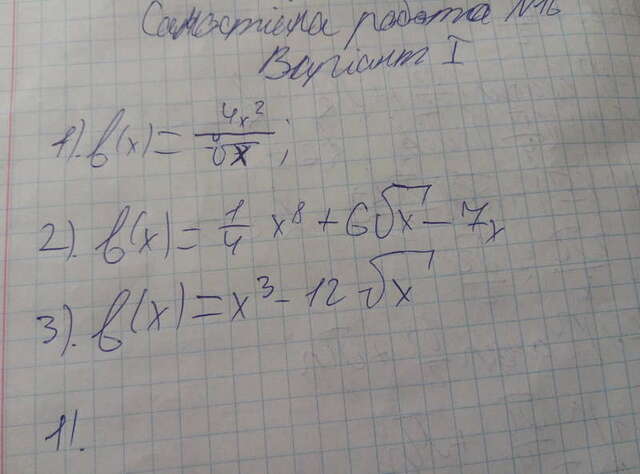 Самостійна работа №16
Варіант I
1). f(x) = 4x² / √x ;
2). f(x) = 1/4 x⁸ + 6√x - 7x
3). f(x) = x³ - 12√x
1).